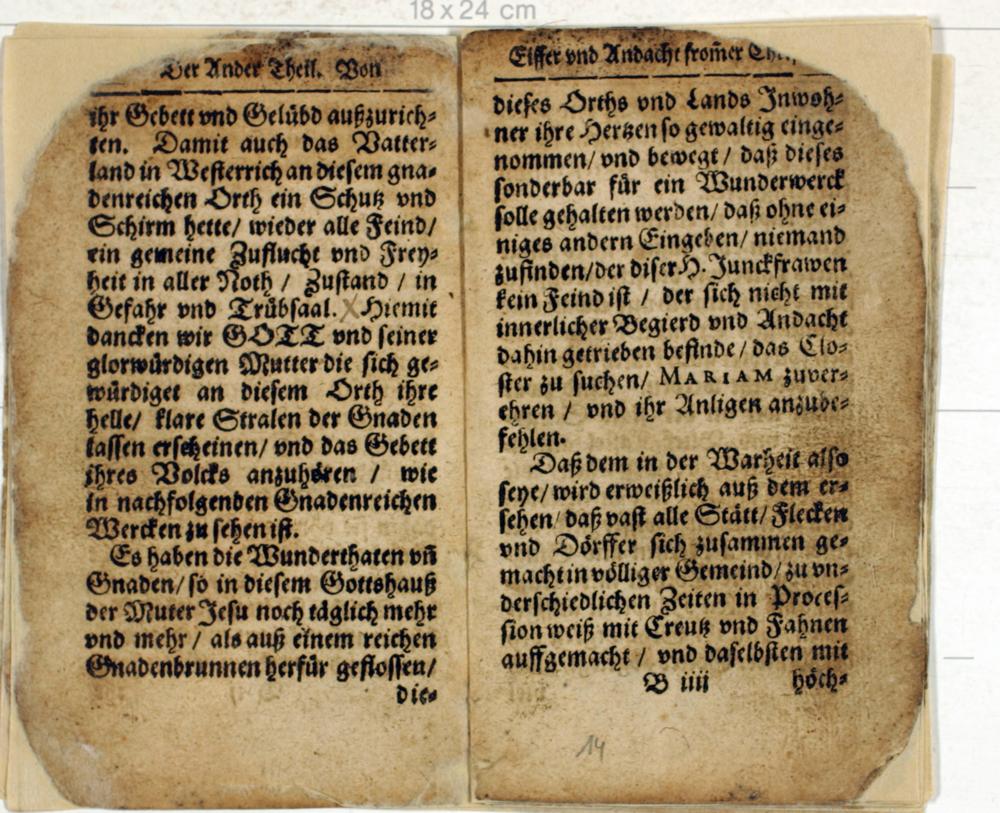 18 x 24 cm
Der Ander Theil. Von
ihr Gebett vnd Gelübd außzurich-
ten. Damit auch das Vatter-
land in Westerrich an diesem gna-
denreichen Orth ein Schutz vnd
Schirm hette/ wieder alle Feind/
ein gemeine Zuflucht vnd Frey-
heit in aller Noth / Zustand / in
Gefahr vnd Trübsaal. X Hiemit
dancken wir GOTT vnd seiner
glorwürdigen Mutter die sich ge-
würdiget an diesem Orth ihre
helle/ klare Stralen der Gnaden
lassen erscheinen/ vnd das Gebett
ihres Volcks anzuhören / wie
in nachfolgenden Gnadenreichen
Wercken zu sehen ist.
Es haben die Wunderthaten vñ
Gnaden/ so in diesem Gottshauß
der Muter Jesu noch täglich mehr
vnd mehr / als auß einem reichen
Gnadenbrunnen herfür geflossen/
die-
Eiffer vnd Andacht from̃er
dieses Orths vnd Lands Inwoh-
ner ihre Hertzen so gewaltig einge-
nommen/ vnd bewegt / daß dieses
sonderbar für ein Wunderwerck
solle gehalten werden/ daß ohne ei-
niges andern Eingeben/ niemand
zufinden/ der diser H. Junckfrawen
kein Feind ist / der sich nicht mit
innerlicher Begierd vnd Andacht
dahin getrieben befinde/ das Clo-
ster zu suchen/ MARIAM zuver-
ehren / vnd ihr Anligen anzube-
fehlen.
Daß dem in der Warheit also
seye/ wird erweißlich auß dem er-
sehen/ daß vast alle Stätt/ Flecken
vnd Dörffer sich zusammen ge-
macht in völliger Gemeind/ zu vn-
derschiedlichen Zeiten in Proces-
sion weiß mit Creutz vnd Fahnen
auffgemacht / vnd daselbsten mit
B iiii höch-
14